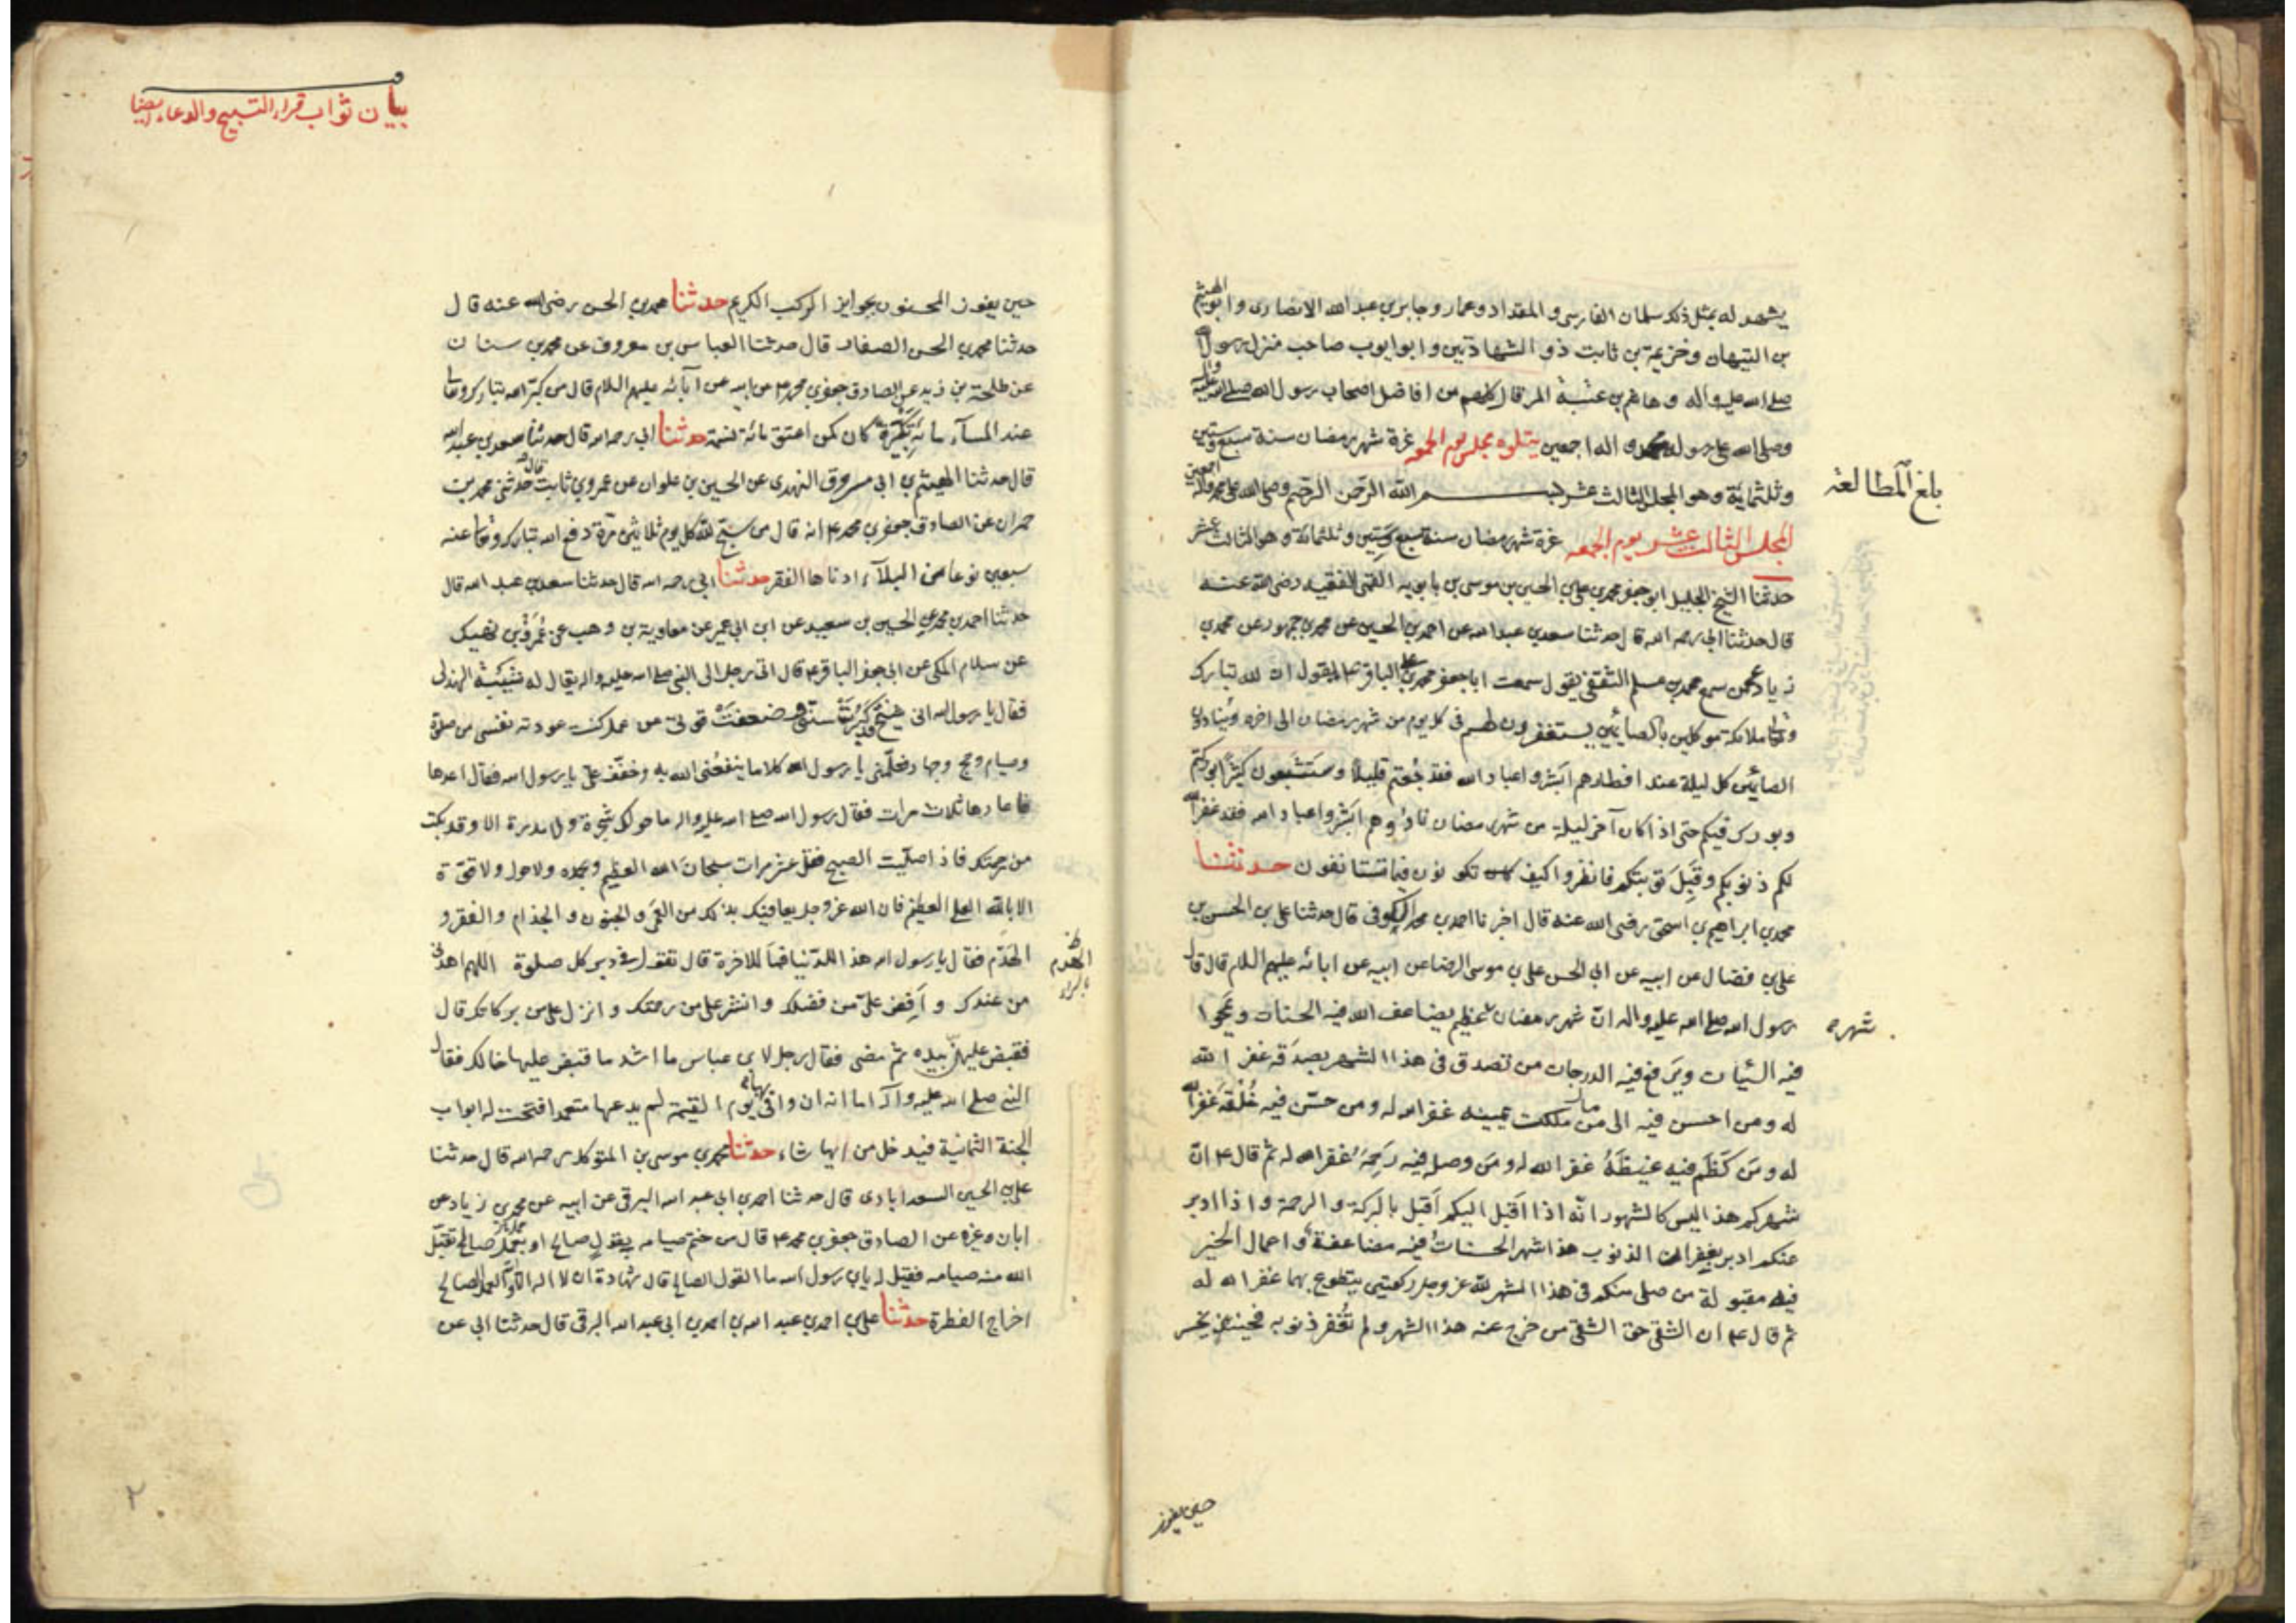 يشهد له بمثل ذلك سلمان الفارسى و المقداد و عمار و جابر بن عبد الله الانصارى و ابو الهيثم
بن التيهان و خزيمة بن ثابت ذو الشهادتين و ابو ايوب صاحب منزل رسول الله
صلى الله عليه و اله و هاشم بن عتبة المرقال كلهم من افاضل اصحاب رسول الله صلى الله عليه واله
وصلى الله على رسوله محمد و اله اجمعين يتلوه مجلس يوم الجمعه غرة شهر رمضان سنة سبع وستين
وثلثمائة و هو المجلس الثالث عشر بسم الله الرحمن الرحيم وصلى الله على محمد واله اجمعين
بلغ المطالعة
المجلس الثالث عشر يوم الجمعه غرة شهر رمضان سنة سبع وستين وثلثمائة و هو الثالث عشر
حدثنا الشيخ الجليل ابو جعفر محمد بن على بن الحسين بن موسى بن بابويه القمى الفقيه رضى الله عنه
قال حدثنا ابى رحمه الله قال حدثنا سعد بن عبد الله عن احمد بن الحسين عن محمد بن جمهور عن محمد بن
زياد عمن سمع محمد بن مسلم الثقفى يقول سمعت ابا جعفر محمد بن على الباقر ع يقول ان لله تبارك
وتعالى ملائكة موكلين بالصائمين يستغفرون لهم فى كل يوم من شهر رمضان الى اخره وينادون
الصائمين كل ليلة عند افطارهم ابشروا عباد الله فقد جُعتم قليلا وستشبعون كثيرا بوركتم
وبورك فيكم حتى اذا كان آخر ليلة من شهر رمضان نادوهم ابشروا عباد الله فقد غفر الله
لكم ذنوبكم و قبل توبتكم فانظروا كيف تكونون فيما تستانفون حدثنا
محمد بن ابراهيم بن اسحق رضى الله عنه قال اخبرنا احمد بن محمد الكوفى قال حدثنا على بن الحسن بن
على بن فضال عن ابيه عن ابى الحسن على بن موسى الرضا عن ابيه عن ابائه عليهم السلام قال قال
رسول الله صلى الله عليه واله ان شهر رمضان شهر عظيم يضاعف الله فيه الحسنات و يمحوا
شهره
فيه السيئات و يرفع فيه الدرجات من تصدق فى هذا الشهر بصدقه غفر الله
له و من احسن فيه الى ما ملكت يمينه غفر الله له و من حسّن فيه خُلقه غفر الله
له و من كظم فيه غيظه غفر الله له و من وصل فيه رحمه غفر الله له ثم قال ع ان
شهركم هذا ليس كالشهور انه اذا اقبل اليكم اقبل بالبركة و الرحمة و اذا ادبر
عنكم ادبر بغفران الذنوب هذا شهر الحسنات فيه مضاعفة و اعمال الخير
فيه مقبولة من صلى منكم فى هذا الشهر لله عز وجل ركعتين يتطوع بهما غفر الله له
ثم قال ع ان الشقى حق الشقى من خرج عنه هذا الشهر ولم تُغفر ذنوبه فحينئذ يخسر
حين يفوز
بيان ثواب قراء التسبيح والدعاء ايضا
حين يفوز المحسنون بجوايز الرب الكريم حدثنا محمد بن الحسن رضى الله عنه قال
حدثنا محمد بن الحسن الصفار قال حدثنا العباس بن معروف عن محمد بن سنان
عن طلحة بن زيد عن الصادق جعفر بن محمد ع عن ابيه عن آبائه عليهم السلام قال من كبّر الله تبارك وتعالى
عند المسآء مائة تكبيرة كان كمن اعتق مائة نسمة حدثنا ابى رحمه الله قال حدثنا سعد بن عبد الله
قال حدثنا الهيثم بن ابى مسروق النهدى عن الحسين بن علوان عن عمرو بن ثابت قال حدثنى محمد بن
حمران عن الصادق جعفر بن محمد ع انه قال من سبّح لله كل يوم ثلاثين مرّة دفع الله تبارك وتعالى عنه
سبعين نوعا من البلآء ادناها الفقر حدثنا ابى رحمه الله قال حدثنا سعد بن عبد الله قال
حدثنا احمد بن محمد عن الحسين بن سعيد عن ابن ابى عمير عن معاوية بن وهب عن عمرو بن نهيك
عن سلام المكى عن ابى جعفر الباقر ع قال اتى رجل الى النبى صلى الله عليه واله يقال له شيبة الهذلى
فقال يا رسول الله انى شيخ قد كبرت سنّى و ضعفت قوتى عن عمل كنت عودته نفسى من صلوة
وصيام و حج و جهاد فعلّمنى يا رسول الله كلاما ينفعنى الله به و خفّف علىّ يا رسول الله فقال اعدها
فاعادها ثلاث مرات فقال رسول الله صلى الله عليه واله ما حولك شجرة ولا مدرة الا و قد بكت
من رحمتك فاذا صليت الصبح فقل عشر مرات سبحان الله العظيم و بحمده ولا حول ولا قوّة
الا بالله العلى العظيم فان الله عز وجل يعافيك بذلك من العمى و الجنون و الجذام و الفقر و
الهدم فقال يا رسول الله هذا للدنيا فما للاخرة قال تقول فى دبر كل صلوة اللهم اهدنى
من عندك و افض علىّ من فضلك و انشر على من رحمتك و انزل على من بركاتك قال
فقبض عليهن بيده ثم مضى فقال رجل لابن عباس ما اشد ما قبض عليها خالك فقال
النبى صلى الله عليه و آله اما انه ان وافى بها يوم القيمة لم يدعها متعمدا فتحت له ابواب
الجنة الثمانية فيدخل من ايها شاء حدثنا محمد بن موسى بن المتوكل رحمه الله قال حدثنا
على بن الحسين السعدابادى قال حدثنا احمد بن ابى عبد الله البرقى عن ابيه عن محمد بن زياد عن
ابان و غيره عن الصادق جعفر بن محمد ع قال من ختم صيامه بقول صالح او بعمل صالح تقبّل
الله منه صيامه فقيل له يابن رسول الله ما القول الصالح قال شهادة ان لا اله الا الله والعمل الصالح
اخراج الفطرة حدثنا على بن احمد بن عبد الله بن احمد بن ابى عبد الله البرقى قال حدثنا ابى عن
٢